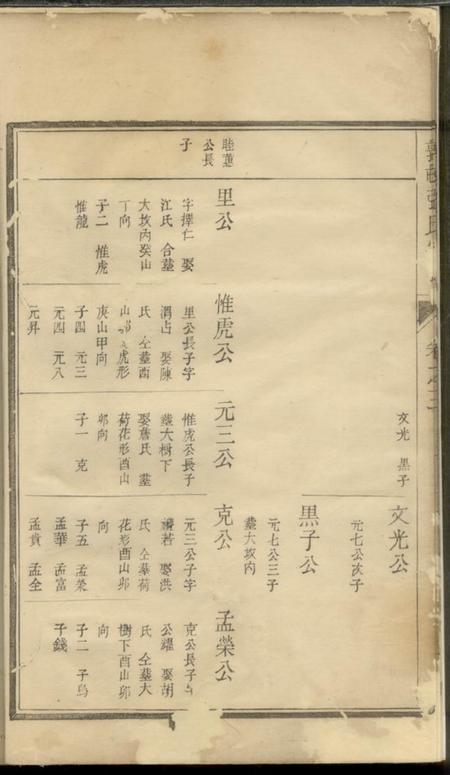 張氏
卷之三
睦蓮
公長
子
里公
字擇仁 娶
江氏 合塟
大坟内癸山
丁向
子二 惟虎
惟龍
惟虎公
里公長子字
渭占 娶陳
氏 仝塟酉
山 虎形
庚山甲向
子四 元三
元四 元八
元昇
文光 黒子
元三公
惟虎公長子
塟大樹下
娶詹氏 塟
荷花形酉山
卯向
子一 克
文光公
元七公次子
黒子公
元七公三子
塟大坟内
克公
元三公子字
若 娶洪
氏 仝塟荷
花形酉山卯
向
子五 孟榮
孟華 孟富
孟貴 孟全
孟榮公
克公長子
公耀 娶胡
氏 仝塟大
樹下酉山卯
向
子二 子烏
子錢